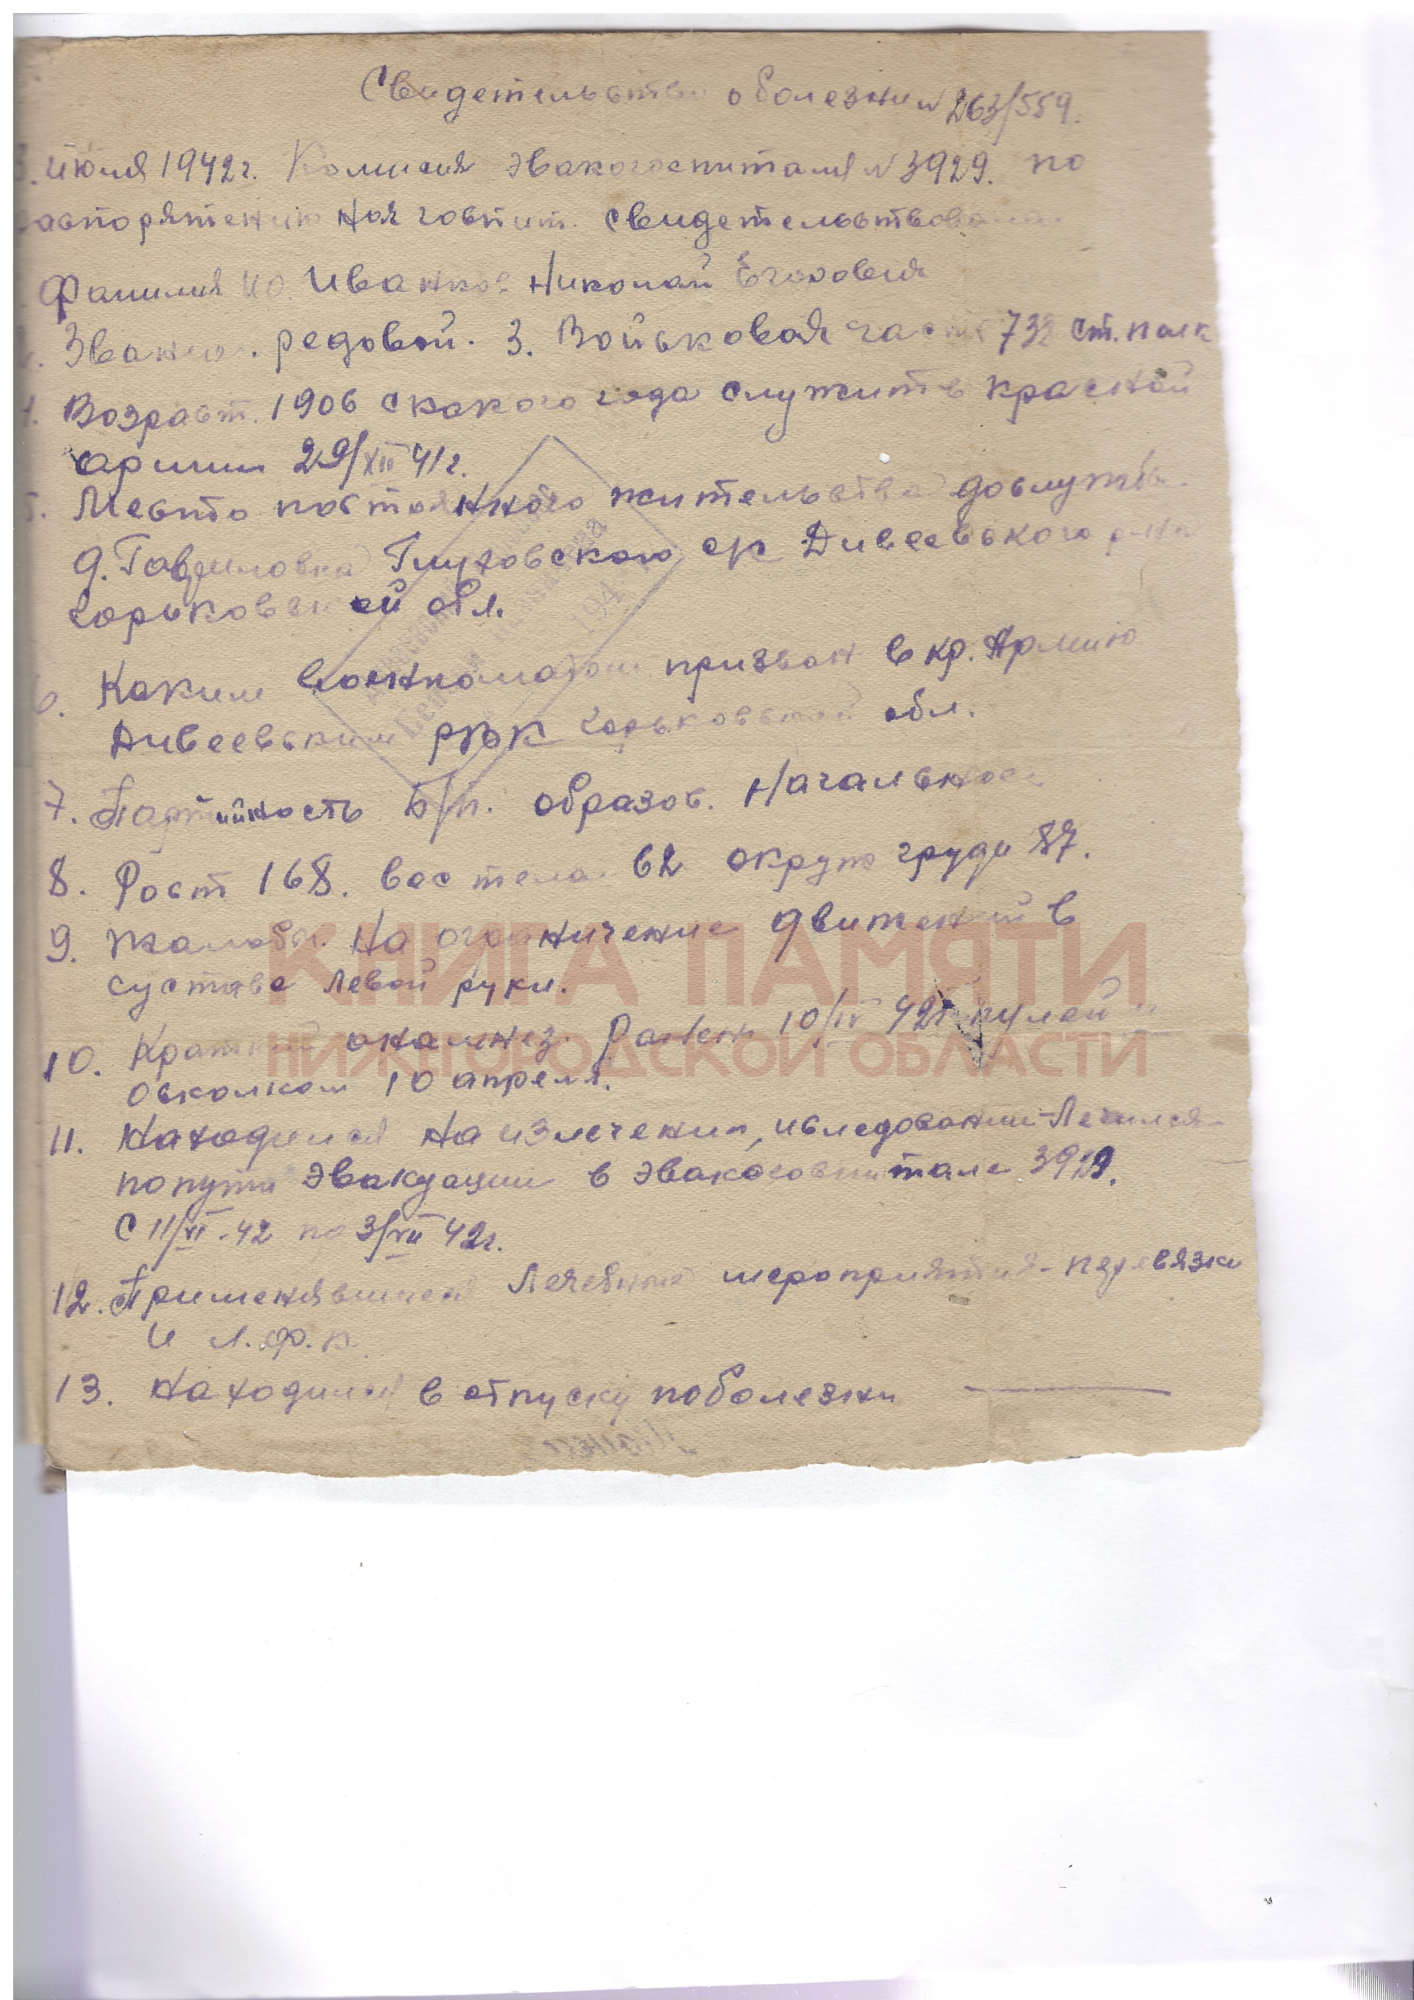 Свидетельство о болезни N 263/559.
3. июля 1942 г. Комисия эвакогоспиталя N 3929. по
распоряжению нач госпит. свидетельствовала
Фамилия ИО. Иванков Николай Егорович
2. Звание. редовой. 3. Войсковая часть 732 ст. полк
4. Возраст. 1906 с какого года служит в красной
армии 29/XII 41 г.
5. Место постоянного жительства до службы.
д. Гавриловка Глуховского с/с Дивеевского р-на
Горьковской обл.
6. Каким военкоматом призван в кр. Армию
Дивеевским РВК Горьковской обл.
7. Партийность б/п. образов. Начальное
8. Рост 168. вес тела. 62 окруж груди 87.
9. Жалобы. На ограничение движений в
суставе левой руки.
10. Краткий анамнез. Ранен 10/IV 42 г пулей и
осколком 10 апреля.
11. Находился на излечении, иследовании - Лечился
по пути эвакуации в эвакогоспитале 3929.
С 11/VI - 42 по 3/VII 42 г.
12. Применявшиеся Лечебные мероприятия - перевязки
и л. ф. к.
13. Находился в отпуску по болезни
КНИГА ПАМЯТИ
НИЖЕГОРОДСКОЙ ОБЛАСТИ